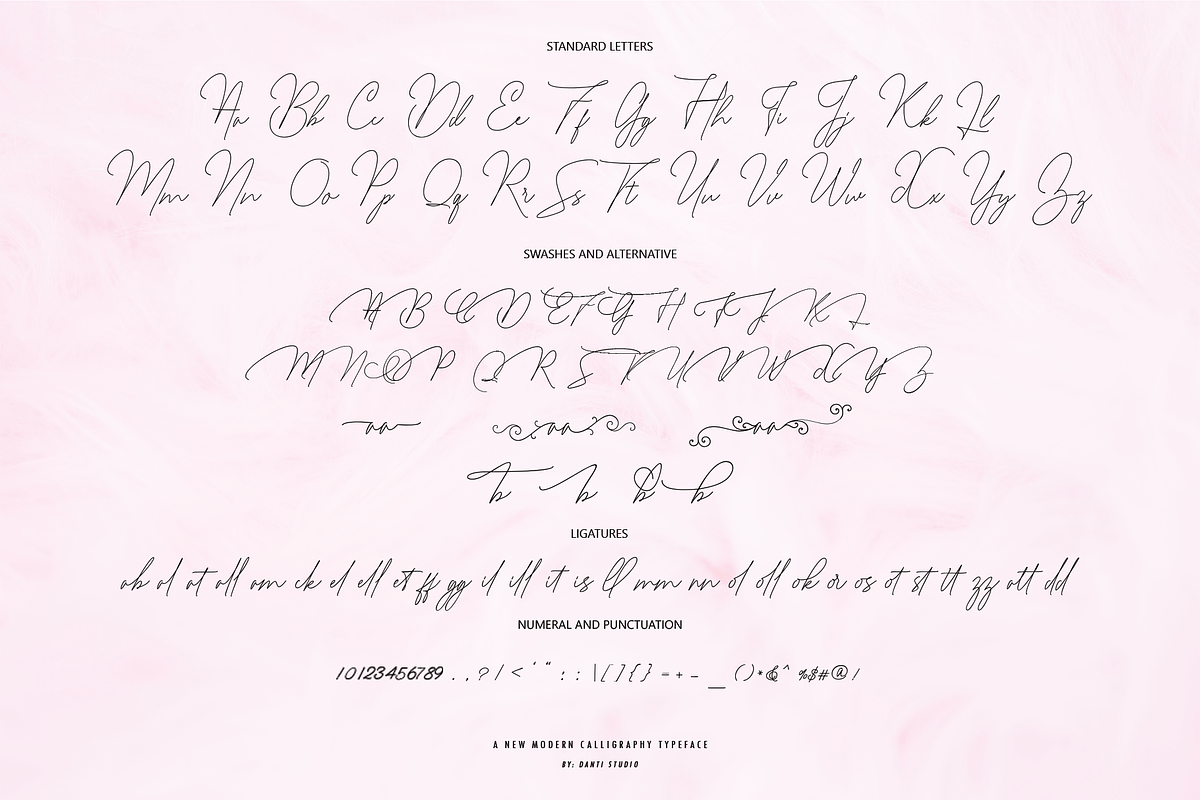 STANDARD LETTERS
Aa Bb Cc Dd Ee Ff Gg Hh Ii Jj Kk Ll
Mm Nn Oo Pp Qq Rr Ss Tt Uu Vv Ww Xx Yy Zz
SWASHES AND ALTERNATIVE
A B C D E F G H I J K L
M N O P Q R S T U V W X Y Z
aa aa aa
b b b b
LIGATURES
ab al at all am ck el ell et ff gg il ill it is ll mm nn ol oll ok or os ot st tt zz ott dd
NUMERAL AND PUNCTUATION
10123456789 . , ? / < ' " : ; \ [ ] { } = + - _ ( ) * & ^ % $ # @ /
A NEW MODERN CALLIGRAPHY TYPEFACE
BY: DANTI STUDIO